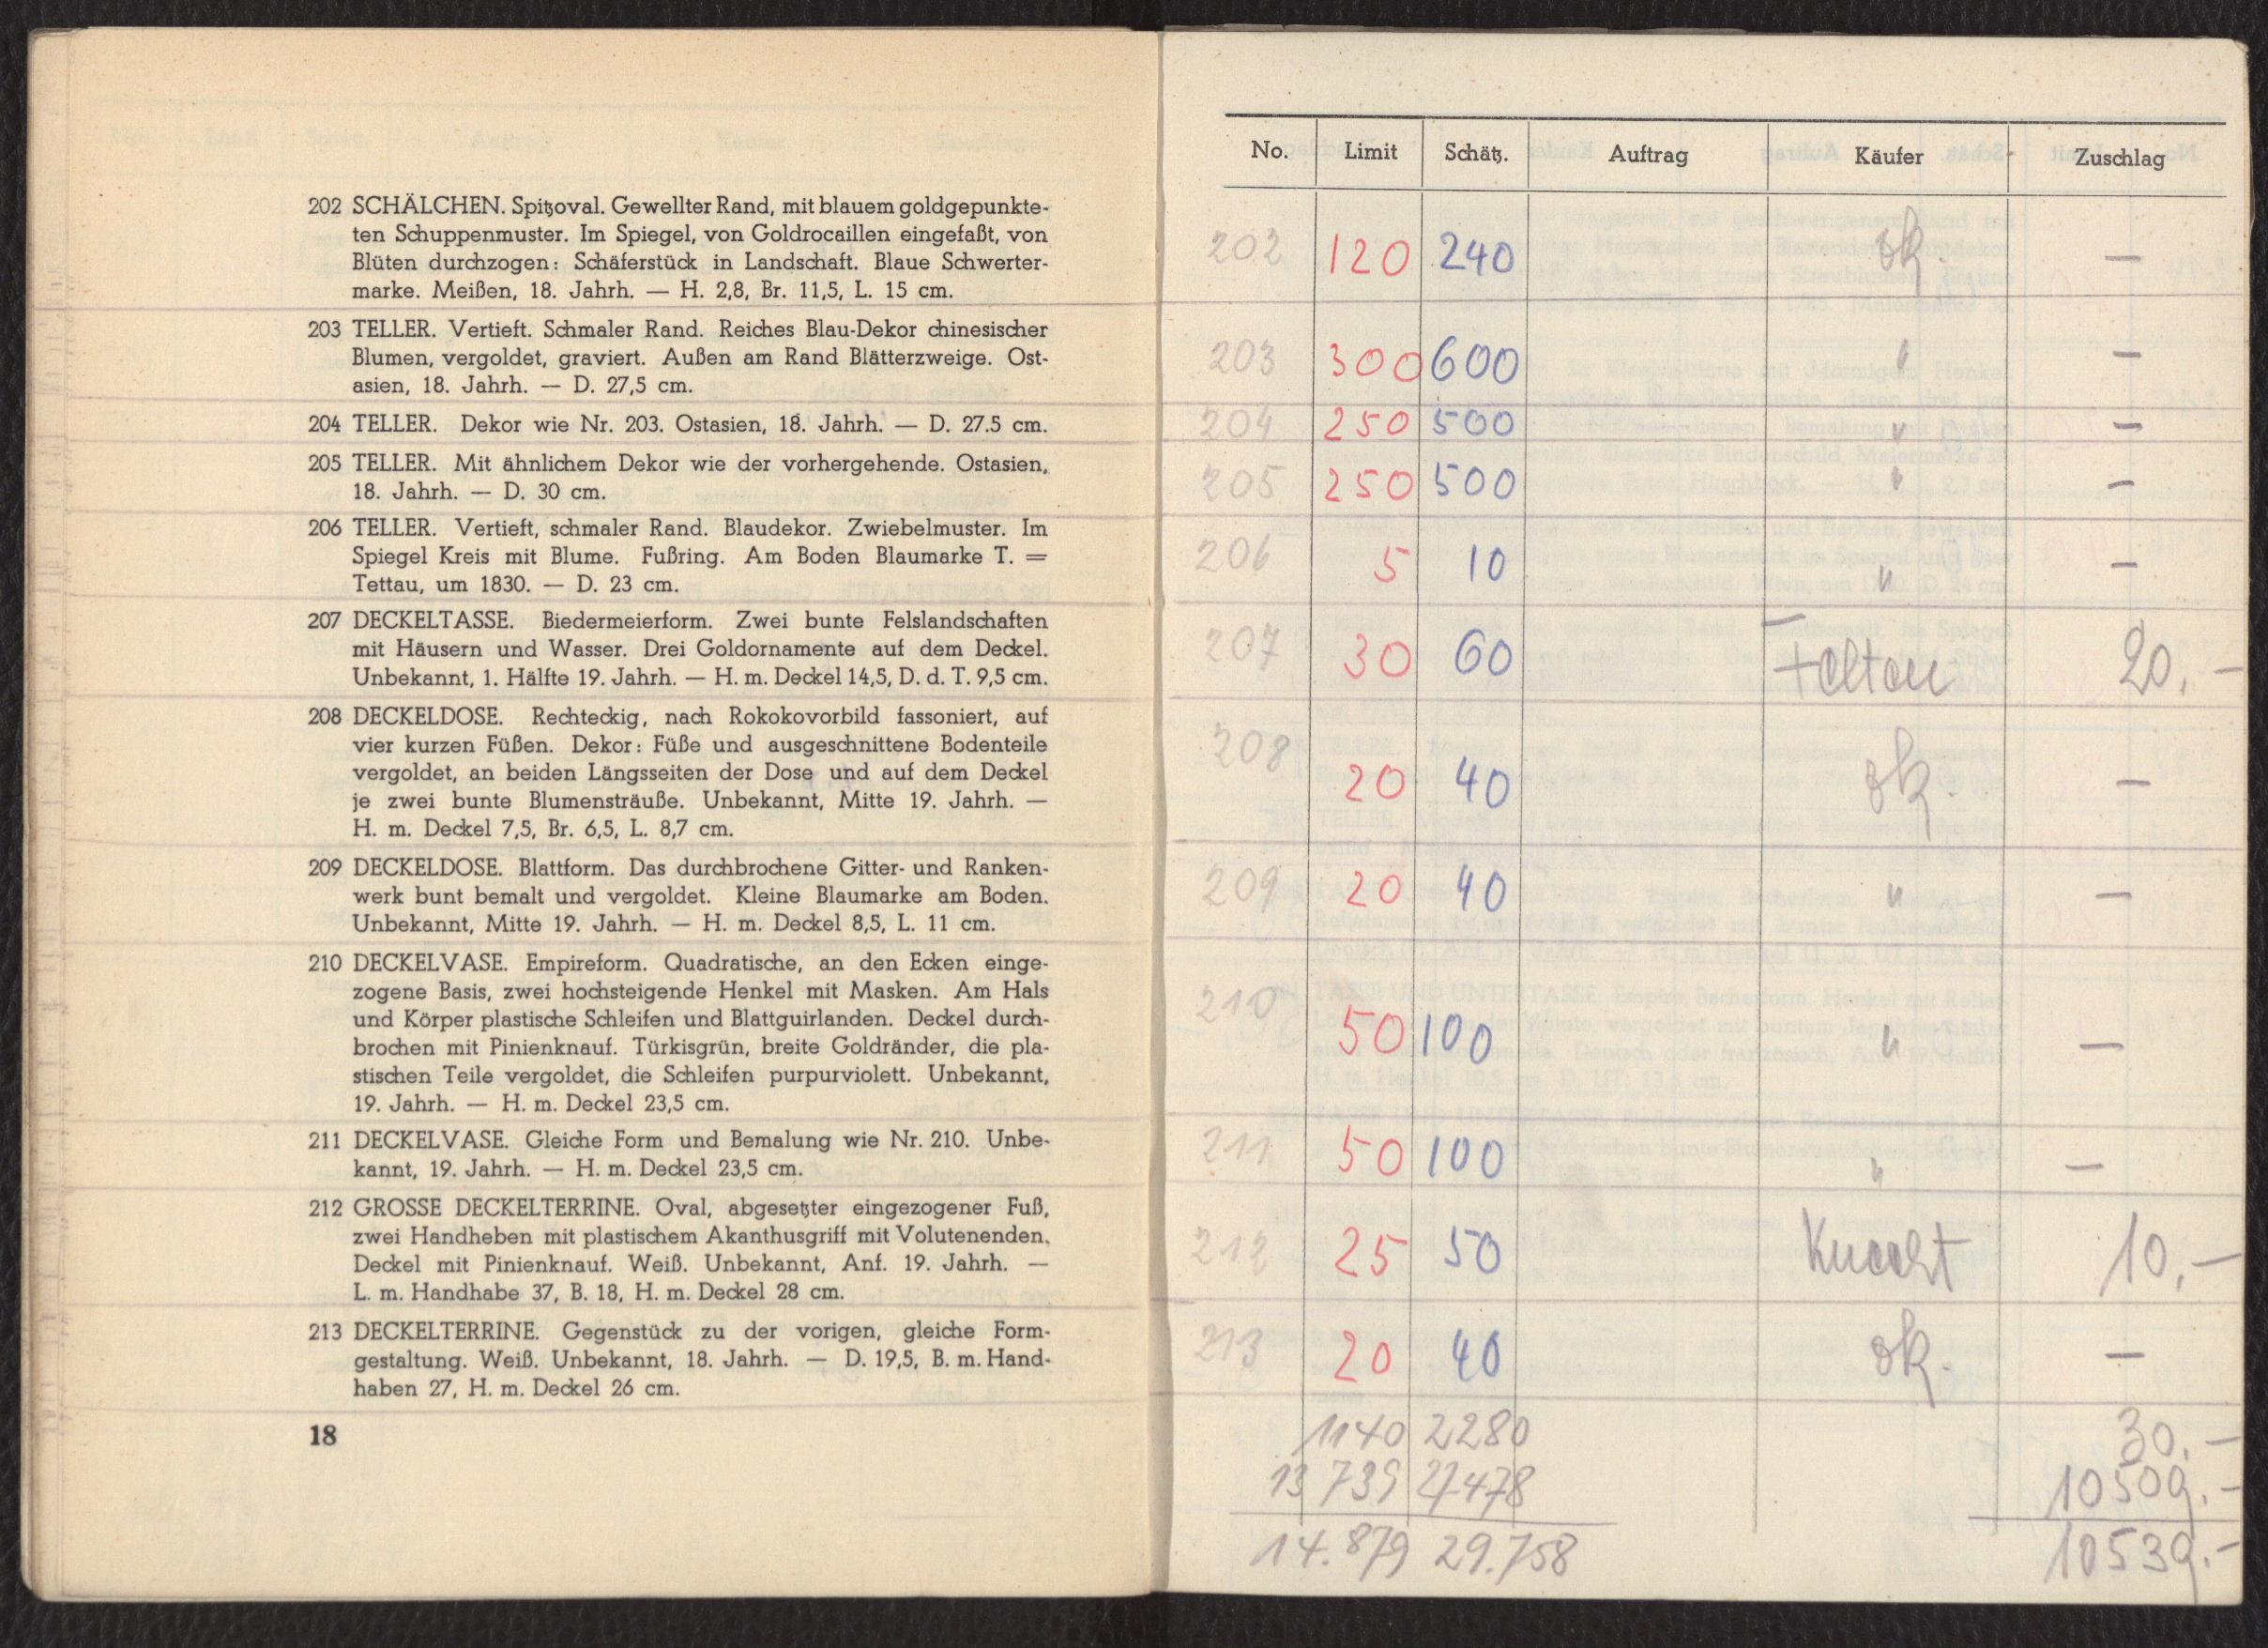 202 SCHÄLCHEN. Spitzoval. Gewellter Rand, mit blauem goldgepunkte-
ten Schuppenmuster. Im Spiegel, von Goldrocaillen eingefaßt, von
Blüten durchzogen: Schäferstück in Landschaft. Blaue Schwerter-
marke. Meißen, 18. Jahrh. — H. 2,8, Br. 11,5, L. 15 cm.
203 TELLER. Vertieft. Schmaler Rand. Reiches Blau-Dekor chinesischer
Blumen, vergoldet, graviert. Außen am Rand Blätterzweige. Ost-
asien, 18. Jahrh. — D. 27,5 cm.
204 TELLER. Dekor wie Nr. 203. Ostasien, 18. Jahrh. — D. 27.5 cm.
205 TELLER. Mit ähnlichem Dekor wie der vorhergehende. Ostasien,
18. Jahrh. — D. 30 cm.
206 TELLER. Vertieft, schmaler Rand. Blaudekor. Zwiebelmuster. Im
Spiegel Kreis mit Blume. Fußring. Am Boden Blaumarke T. =
Tettau, um 1830. — D. 23 cm.
207 DECKELTASSE. Biedermeierform. Zwei bunte Felslandschaften
mit Häusern und Wasser. Drei Goldornamente auf dem Deckel.
Unbekannt, 1. Hälfte 19. Jahrh. — H. m. Deckel 14,5, D. d. T. 9,5 cm.
208 DECKELDOSE. Rechteckig, nach Rokokovorbild fassoniert, auf
vier kurzen Füßen. Dekor: Füße und ausgeschnittene Bodenteile
vergoldet, an beiden Längsseiten der Dose und auf dem Deckel
je zwei bunte Blumensträuße. Unbekannt, Mitte 19. Jahrh. —
H. m. Deckel 7,5, Br. 6,5, L. 8,7 cm.
209 DECKELDOSE. Blattform. Das durchbrochene Gitter- und Ranken-
werk bunt bemalt und vergoldet. Kleine Blaumarke am Boden.
Unbekannt, Mitte 19. Jahrh. — H. m. Deckel 8,5, L. 11 cm.
210 DECKELVASE. Empireform. Quadratische, an den Ecken einge-
zogene Basis, zwei hochsteigende Henkel mit Masken. Am Hals
und Körper plastische Schleifen und Blattguirlanden. Deckel durch-
brochen mit Pinienknauf. Türkisgrün, breite Goldränder, die pla-
stischen Teile vergoldet, die Schleifen purpurviolett. Unbekannt,
19. Jahrh. — H. m. Deckel 23,5 cm.
211 DECKELVASE. Gleiche Form und Bemalung wie Nr. 210. Unbe-
kannt, 19. Jahrh. — H. m. Deckel 23,5 cm.
212 GROSSE DECKELTERRINE. Oval, abgesetzter eingezogener Fuß,
zwei Handheben mit plastischem Akanthusgriff mit Volutenenden.
Deckel mit Pinienknauf. Weiß. Unbekannt, Anf. 19. Jahrh. —
L. m. Handhabe 37, B. 18, H. m. Deckel 28 cm.
213 DECKELTERRINE. Gegenstück zu der vorigen, gleiche Form-
gestaltung. Weiß. Unbekannt, 18. Jahrh. — D. 19,5, B. m. Hand-
haben 27, H. m. Deckel 26 cm.
18
No. Limit Schätz. Auftrag Käufer Zuschlag
202 120 240 —
203 300 600 " —
204 250 500 " —
205 250 500 " —
206 5 10 " —
207 30 60 20.—
208 20 40 —
209 20 40 " —
210 50 100 " —
211 50 100 " —
212 25 50 10.—
213 20 40 —
1140 2280 30.—
13 739 27478 10509.—
14.879 29.758 10539.—